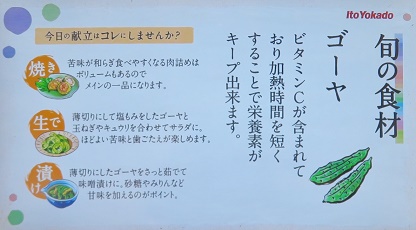 ItoYokado
旬の食材
ゴーヤ
ビタミンCが含まれて
おり加熱時間を短く
することで栄養素が
キープ出来ます。
今日の献立はコレにしませんか?
焼き
苦味が和らぎ食べやすくなる肉詰めは
ボリュームもあるので
メインの一品になります。
生で
薄切りにして塩もみをしたゴーヤと
玉ねぎやキュウリを合わせてサラダに。
ほどよい苦味と歯ごたえが楽しめます。
漬け
薄切りにしたゴーヤをさっと茹でて
味噌漬けに。砂糖やみりんなど
甘味を加えるのがポイント。